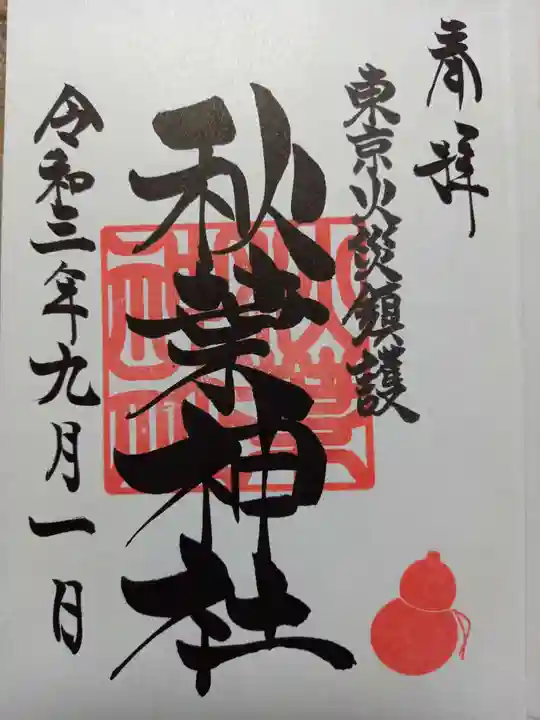 奉拝
東京火災鎮護
秋葉神社
令和三年九月一日